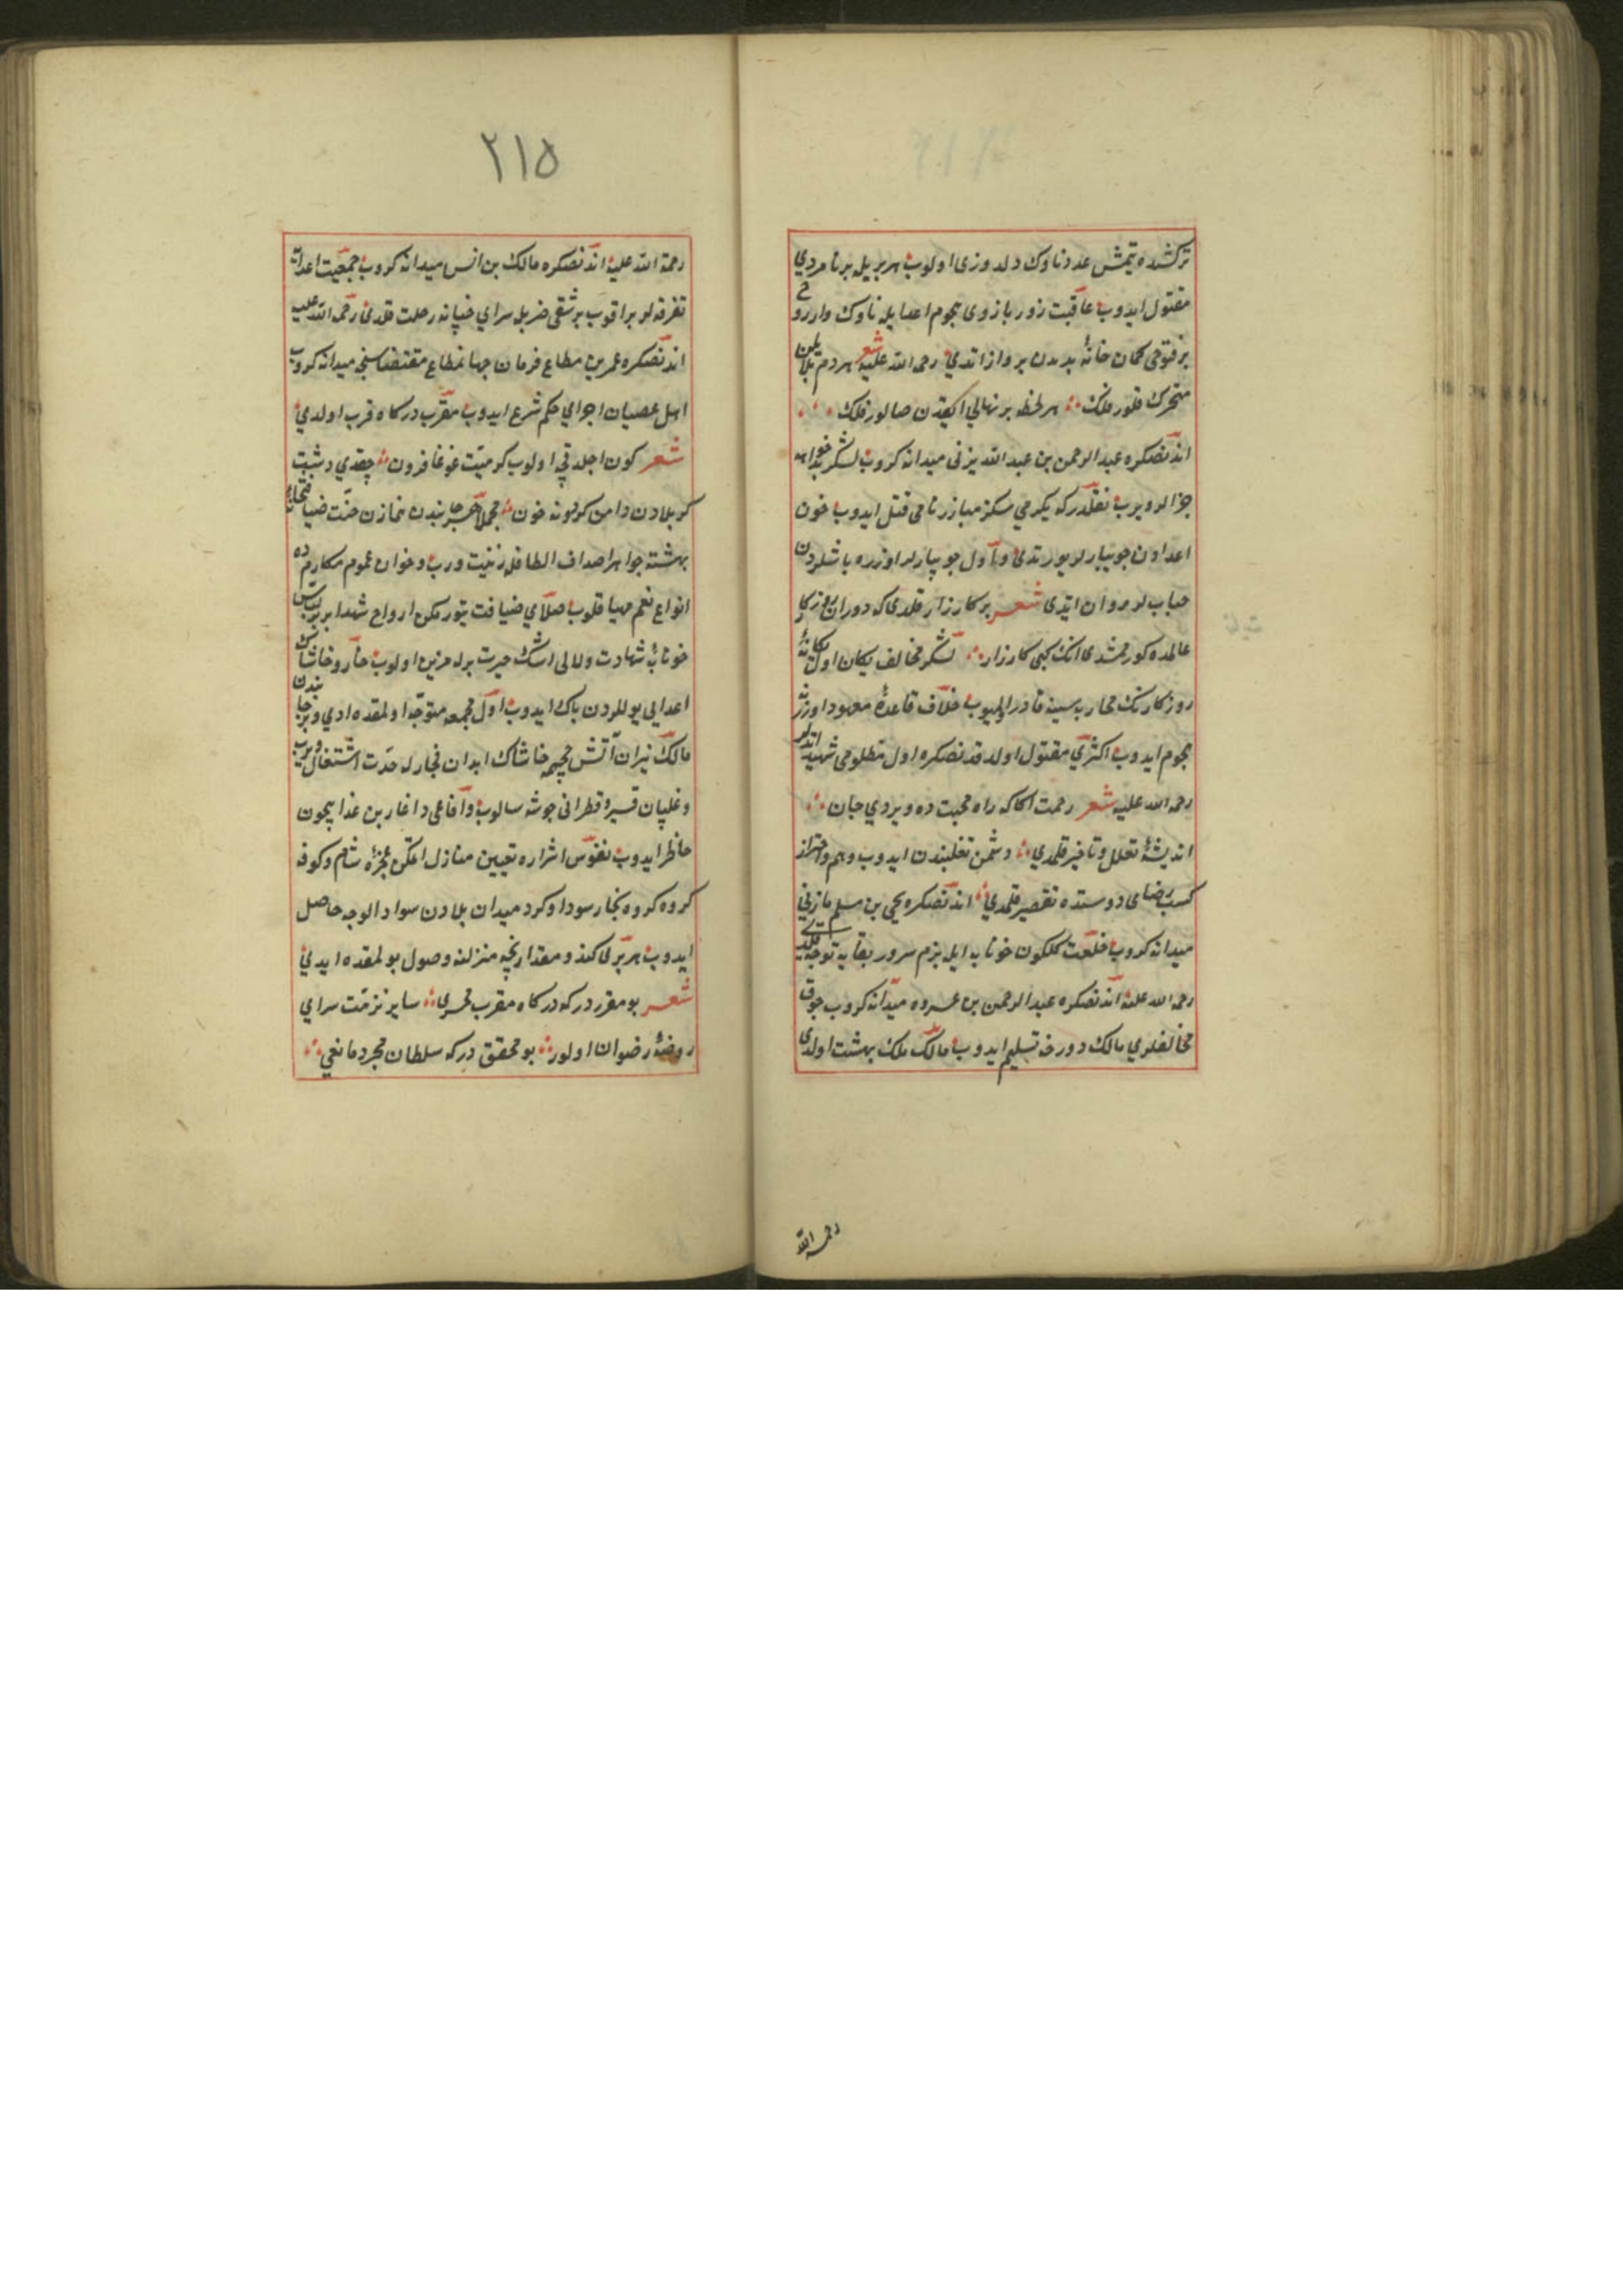 تركشده يتمش عدد ناوك دلدوزى اولوب هر بريله بر نامردي
مقتول ايدوب عاقبت زور بازوى هجوم اعدايله ناوك وار روح
بر فتوحى كمان خانهٔ بدندن پرواز اتدي رحمه الله عليه شعر هر دم
متحرك قلور فلك هر لحظه بر نهالي اياقدن صالور فلك
اندنصكره عبد الرحمن بن عبد الله يزنى ميدانه كروب لشكر بدخواهه
جزالر ويروب نقلدركه يكرمي سكز مبارز نامى قتل ايدوب خون
اعدادن جويبارلر يورتدى و اول جويبارلر اوزره باشلردن
حبابلر روان ايتدى شعر بر كارزار قلدى كه دوران روزكار
عالمده كورممشدى انك كبى كارزار لشكر مخالف يكان اول يكانهٔ
روزكارنك محاربه سينه قادر اولميوب خلاف قاعدهٔ معهود اوزرينه
هجوم ايدوب اكثري مقتول اولدقدنصكره اول مظلومى شهيد اتديلر
رحمه الله عليه شعر رحمت اكا كه راه محبت ده ويردي جان
انديشهٔ تعلل وتاخير قلمدي دشمن تغلبندن ايدوب وهم واحتراز
كسب رضاى دوستده تقصير قلمدي اندنصكره يحيى بن مسلم مازني
ميدانه كروب خلعت كلكون خونابه ايله بزم سرور بقايه توجه قلدى
رحمه الله عليه اندنصكره عبد الرحمن بن عروه ميدانه كروب جوق
مخالفلري مالك دوزخه تسليم ايدوب مالك ملك بهشت اولدى
رحمه الله
٢١٥
رحمة الله عليه اندنصكره مالك بن انس ميدانه كروب جمعيت اعدايه
تفرقه لر براقوب بر شقى ضربيله سراي ضيانه رحلت قلدى رحمه الله عليه
اندنصكره عمر بن مطاع فرمان جهانمطاع مقتضاسنجه ميدانه كروب
اهل عصيان اجراي حكم شرع ايدوب مقرب دركاه قرب اولدي
شعر كون اجلدقچه اولوب كرميت غوغا فزون چقدي دشت
كربلادن دامن كردونه خون مجملا بر جانبدن خازن جنت ضيافتخانهٔ
بهشته جواهر اصداف الطافله زينت ويروب وخوان عموم مكارمده
انواع نعم مهيا قلوب صلاي ضيافت يتوررلكن ارواح شهدا بربر لباس
خونابهٔ شهادت ولالى اشك حيرت برله مزين اولوب خار وخاشاك
اعدايي يوللردن پاك ايدوب اول مجمعه متوجه اولمقده ايدي وبر جانبدن
مالك نيران آتش جحيمه خاشاك ابدان فجارله حدت اشتعال ويروب
وغليان قير وقطرانى جوشه سالوب وافاعى داغارين عذاب ايچون
حاظر ايدوب نفوس اشراره تعيين منازل اتمكن عجزهٔ شام وكوفه
كروه كروه تجار سوداوكرد ميدان بلادن سواد الوجه حاصل
ايدوب هر برى كندو مقدارنجه منزلنه وصول بولمقده ايدي
شعر بو مقرردر كه دركاه مقرب محرمى ساير نزهت سراي
روضهٔ رضوان اولور بو محققدركه سلطان مجرد مانعي